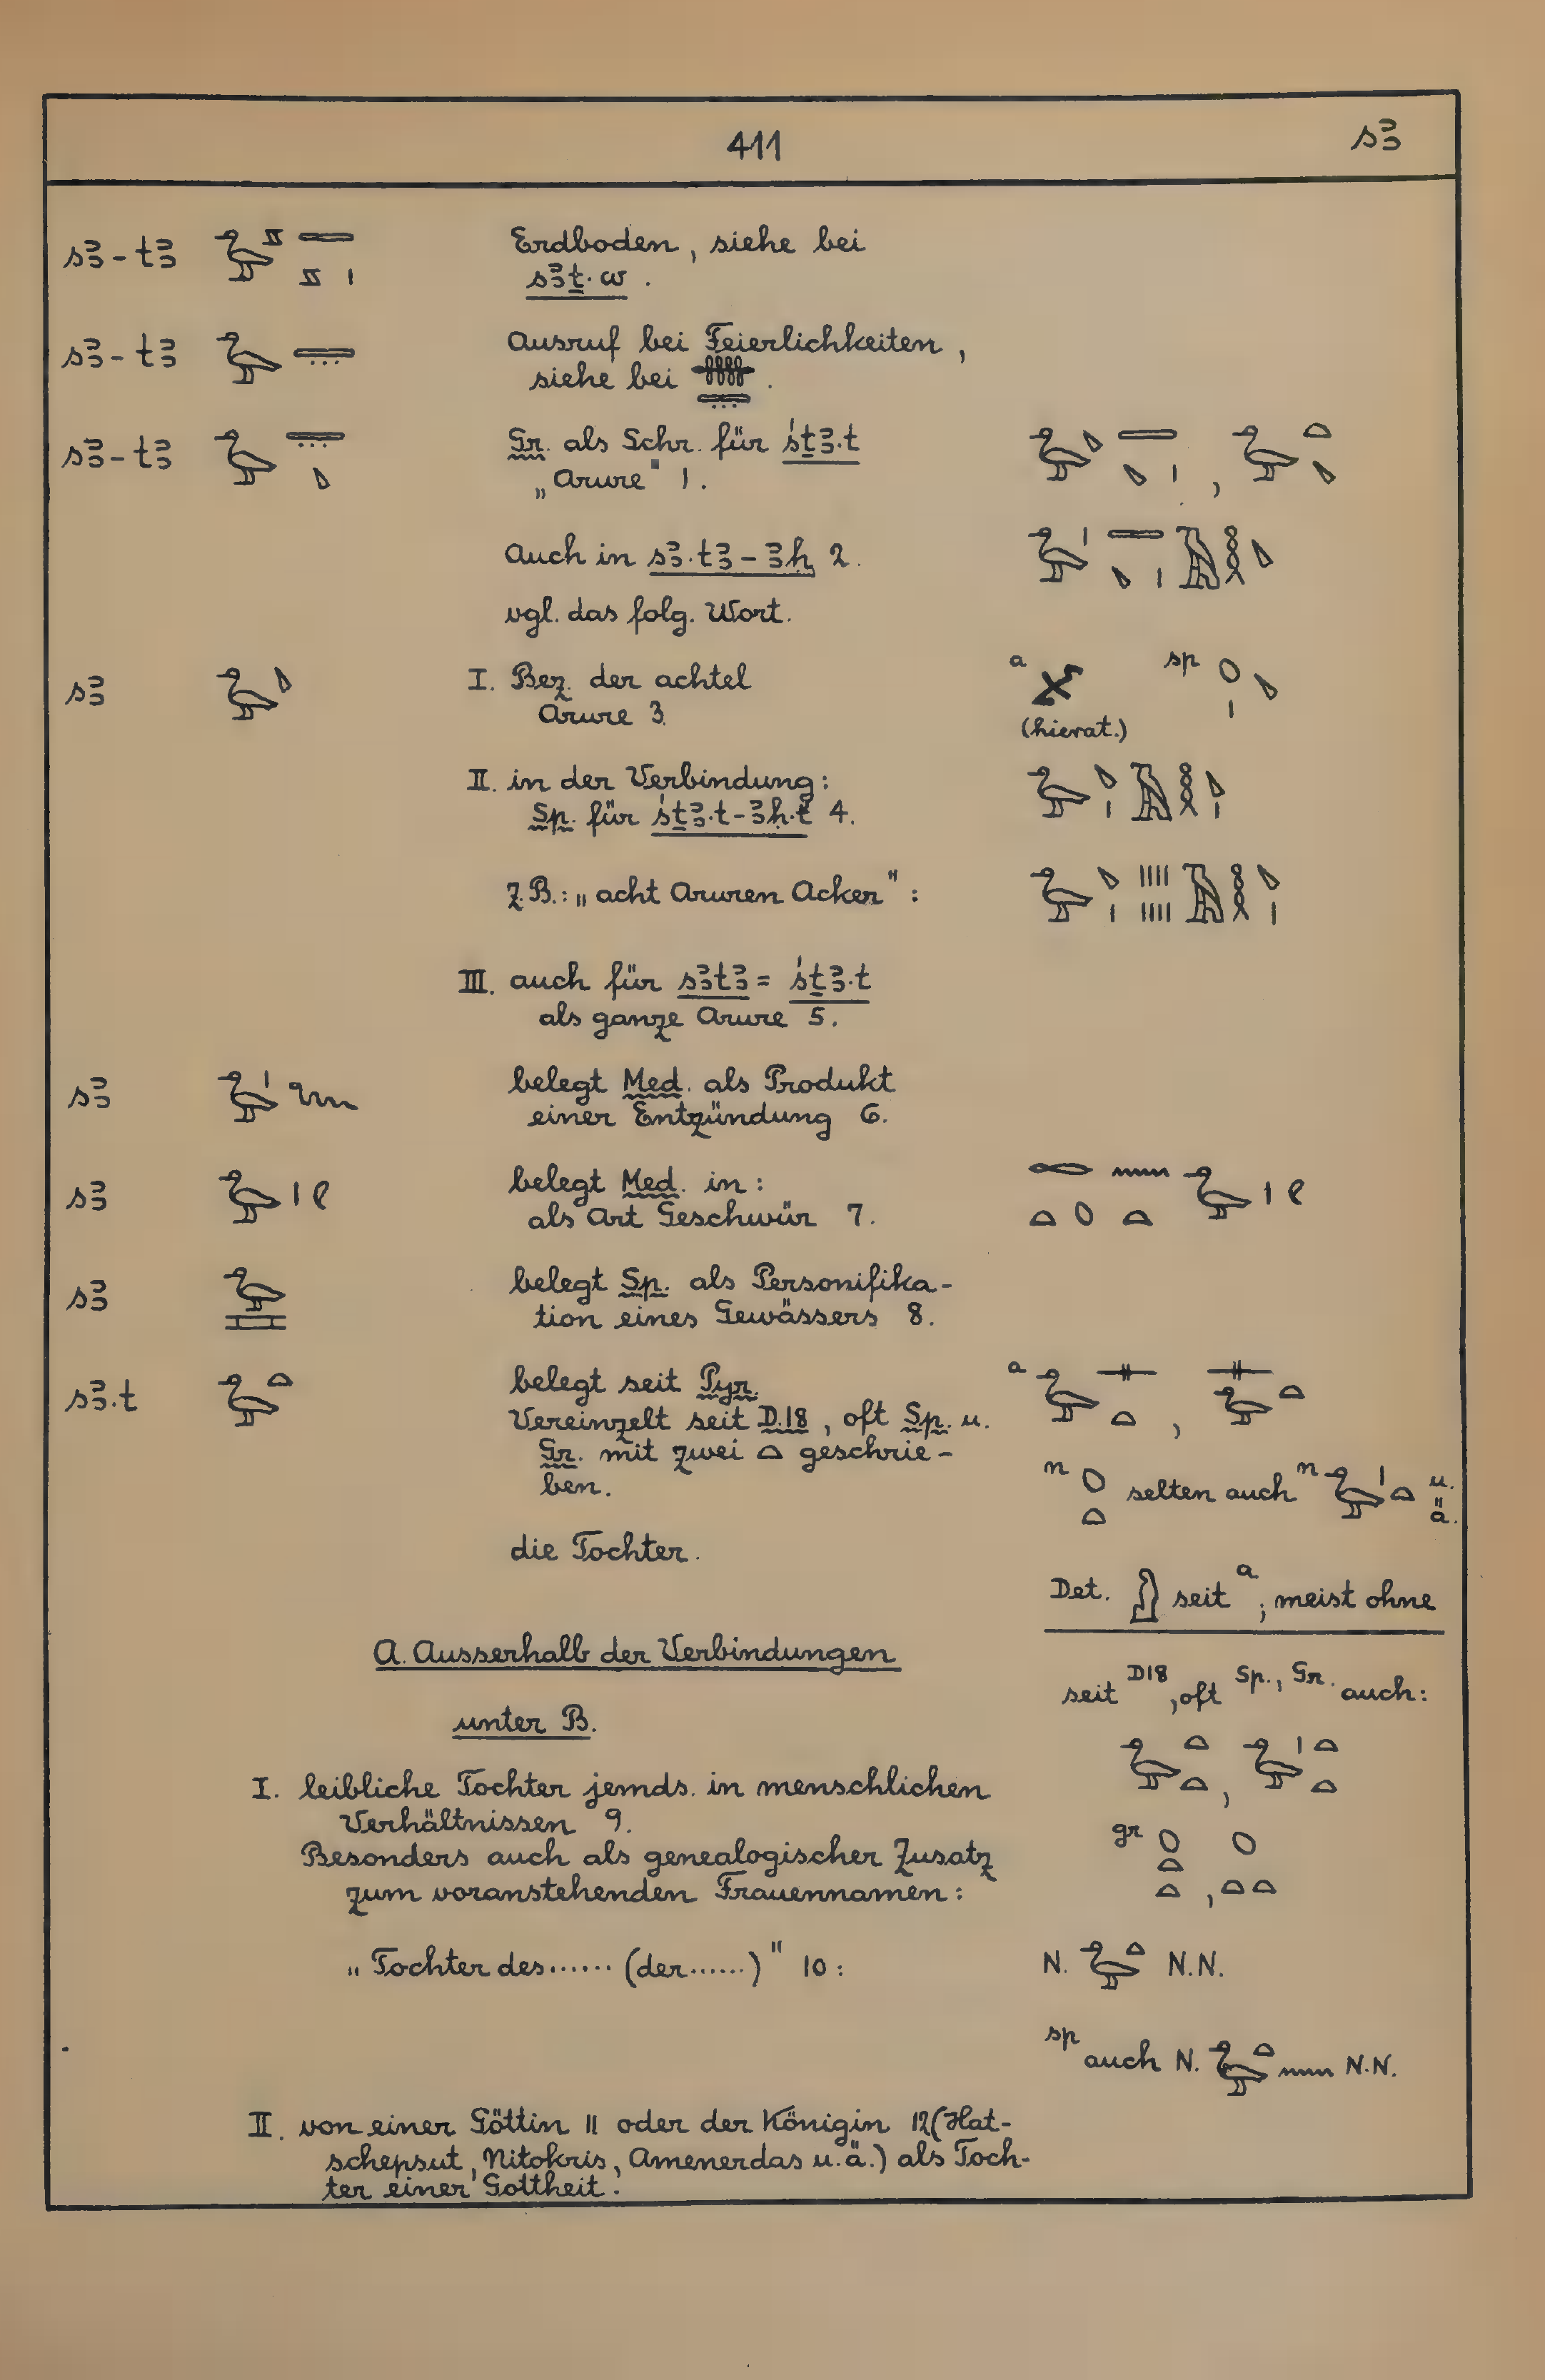 411
sꜣ
sꜣ-tꜣ 𓅭𓐮𓇾𓐮𓏤 Erdboden, siehe bei
sꜣṯ.w.
sꜣ-tꜣ 𓅭𓇾 Ausruf bei Feierlichkeiten,
siehe bei .
sꜣ-tꜣ 𓅭𓇾 Gr. als Schr. für śṯꜣ.t
„Arure" 1.
Auch in sꜣ.tꜣ-ꜣḥ 2.
vgl. das folg. Wort.
sꜣ 𓅭 I. Bez. der achtel
Arure 3.
a (hierat.) sp
II. in der Verbindung:
Sp. für śṯꜣ.t-ꜣḥ.t 4.
z.B.: „acht Aruren Acker":
III. auch für sꜣtꜣ = śṯꜣ.t
als ganze Arure 5.
sꜣ 𓅭𓏤 belegt Med. als Produkt
einer Entzündung 6.
sꜣ 𓅭𓏤 belegt Med. in:
als Art Geschwür 7.
sꜣ 𓅭𓈇 belegt Sp. als Personifika-
tion eines Gewässers 8.
sꜣ.t 𓅭𓏏 belegt seit Pyr.
Vereinzelt seit D.18, oft Sp. u.
Gr. mit zwei 𓏏 geschrie-
ben.
die Tochter.
a 𓅭𓊃𓏏, 𓊃𓅭𓏏
n 𓆇𓏏 selten auch n 𓅭𓏤𓏏 u.ä.
Det. 𓁐 seit a; meist ohne
A. Ausserhalb der Verbindungen
unter B.
seit D18, oft Sp., Gr. auch:
𓅭𓏏𓏏, 𓅭𓏤𓏏𓏏
gr 𓆇𓏏𓏏, 𓆇𓏏𓏏
I. leibliche Tochter jemds. in menschlichen
Verhältnissen 9.
Besonders auch als genealogischer Zusatz
zum voranstehenden Frauennamen:
„Tochter des...... (der......)" 10: N. 𓅭𓏏 N.N.
sp auch N. 𓅭𓏏𓈖 N.N.
II. von einer Göttin 11 oder der Königin 12 (Hat-
schepsut, Nitokris, Amenerdas u.ä.) als Toch-
ter einer Gottheit.